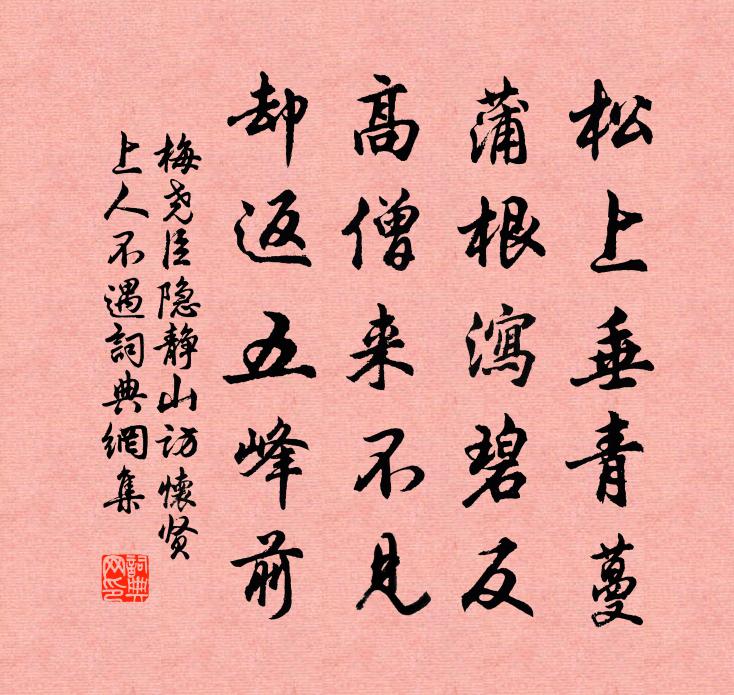 松上垂青蔓
蒲根瀉碧反
高僧来不見
却返五峰前
梅尧臣隐静山访懷贤
上人不遇詞典網集
詞典
网印